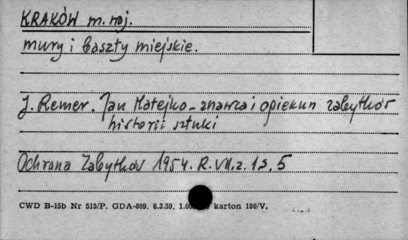 KRAKÓW m. woj.
mury i baszty miejskie.
J. Remer. Jan Matejko - znawca i opiekun zabytków
historii sztuki
Ochrona Zabytków 1954. R. VII. z. 1 S. 5
CWD B-15b Nr 515/P. GDA-809. 6.3.50. karton 180/V.